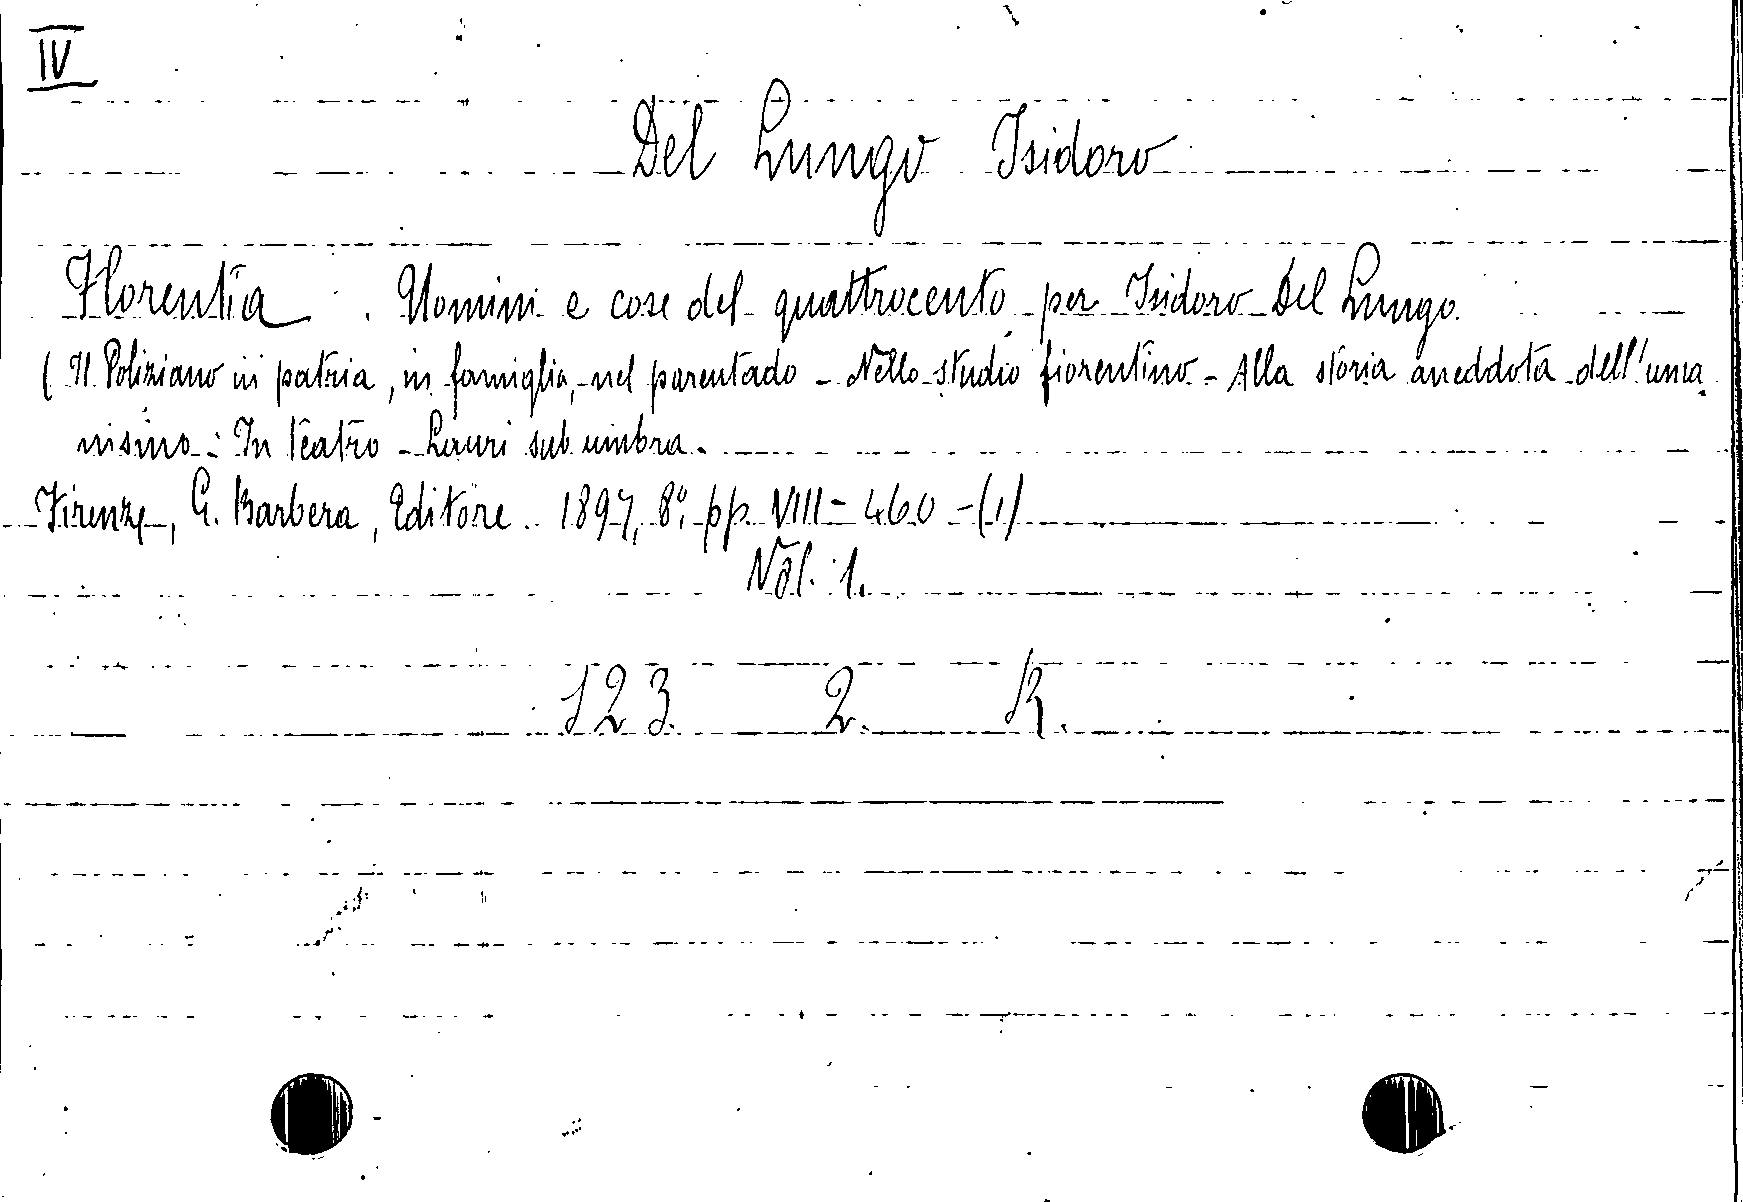 IV
Del Lungo Isidoro
Florentia. Uomini e cose del quattrocento per Isidoro Del Lungo.
( Il Poliziano in patria, in famiglia, nel parentado - Nello studio fiorentino - Alla storia aneddota dell'uma
nismo - In teatro - Lauri sub umbra.
Firenze, G. Barbera, Editore. 1897, 8.° pp. VIII - 460 - (1)
Vol. 1.
123 2. R.